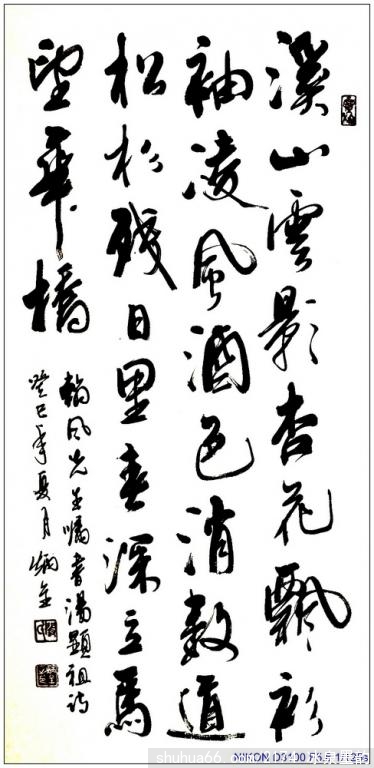 溪山雲影杏花飄衫
袖凌風酒色消數道
松杉殘日里春深立馬
望華橋
風先生囑書湯顯祖詩
癸巳年夏月炳
NIKON D3100
shuhua66.